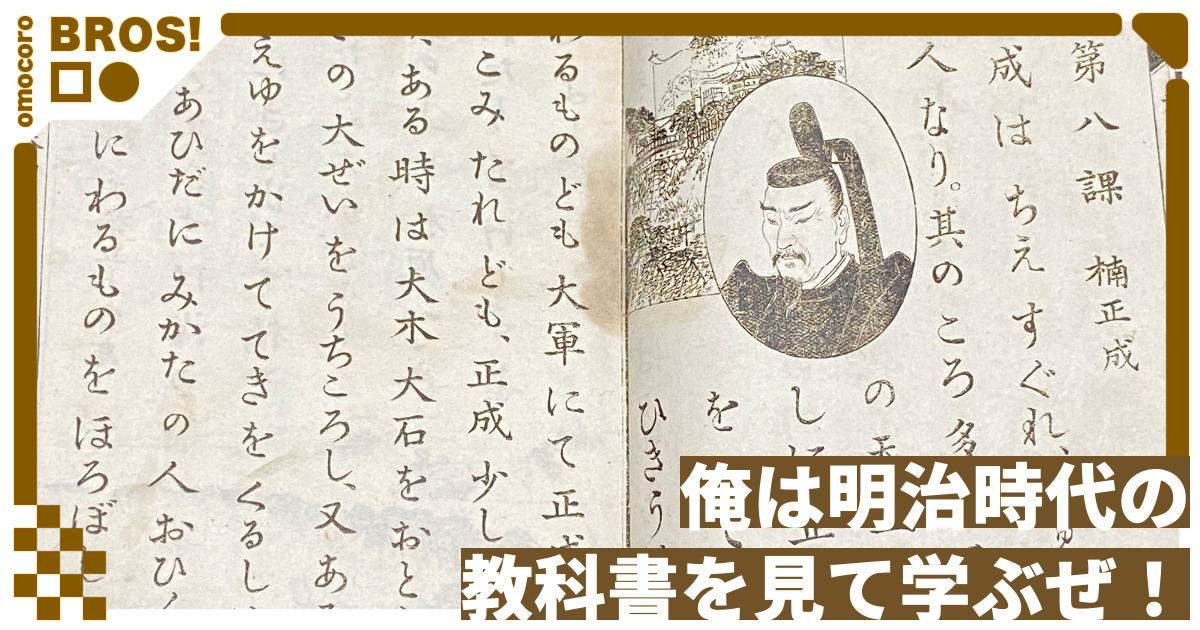 omocoro
BROS!
第八課 楠正成
成はちえすぐれ、
人なり。其のころ多
の
しに
を
ひきう
わるものども大軍にて正成
こみたれども、正成少し
、ある時は大木大石をおと
ての大ぜいをうちころし、又あ
えゆをかけててきをくるし
あひだにみかたの人おひ
にわるものをほろぼし
俺は明治時代の
教科書を見て学ぶぜ！